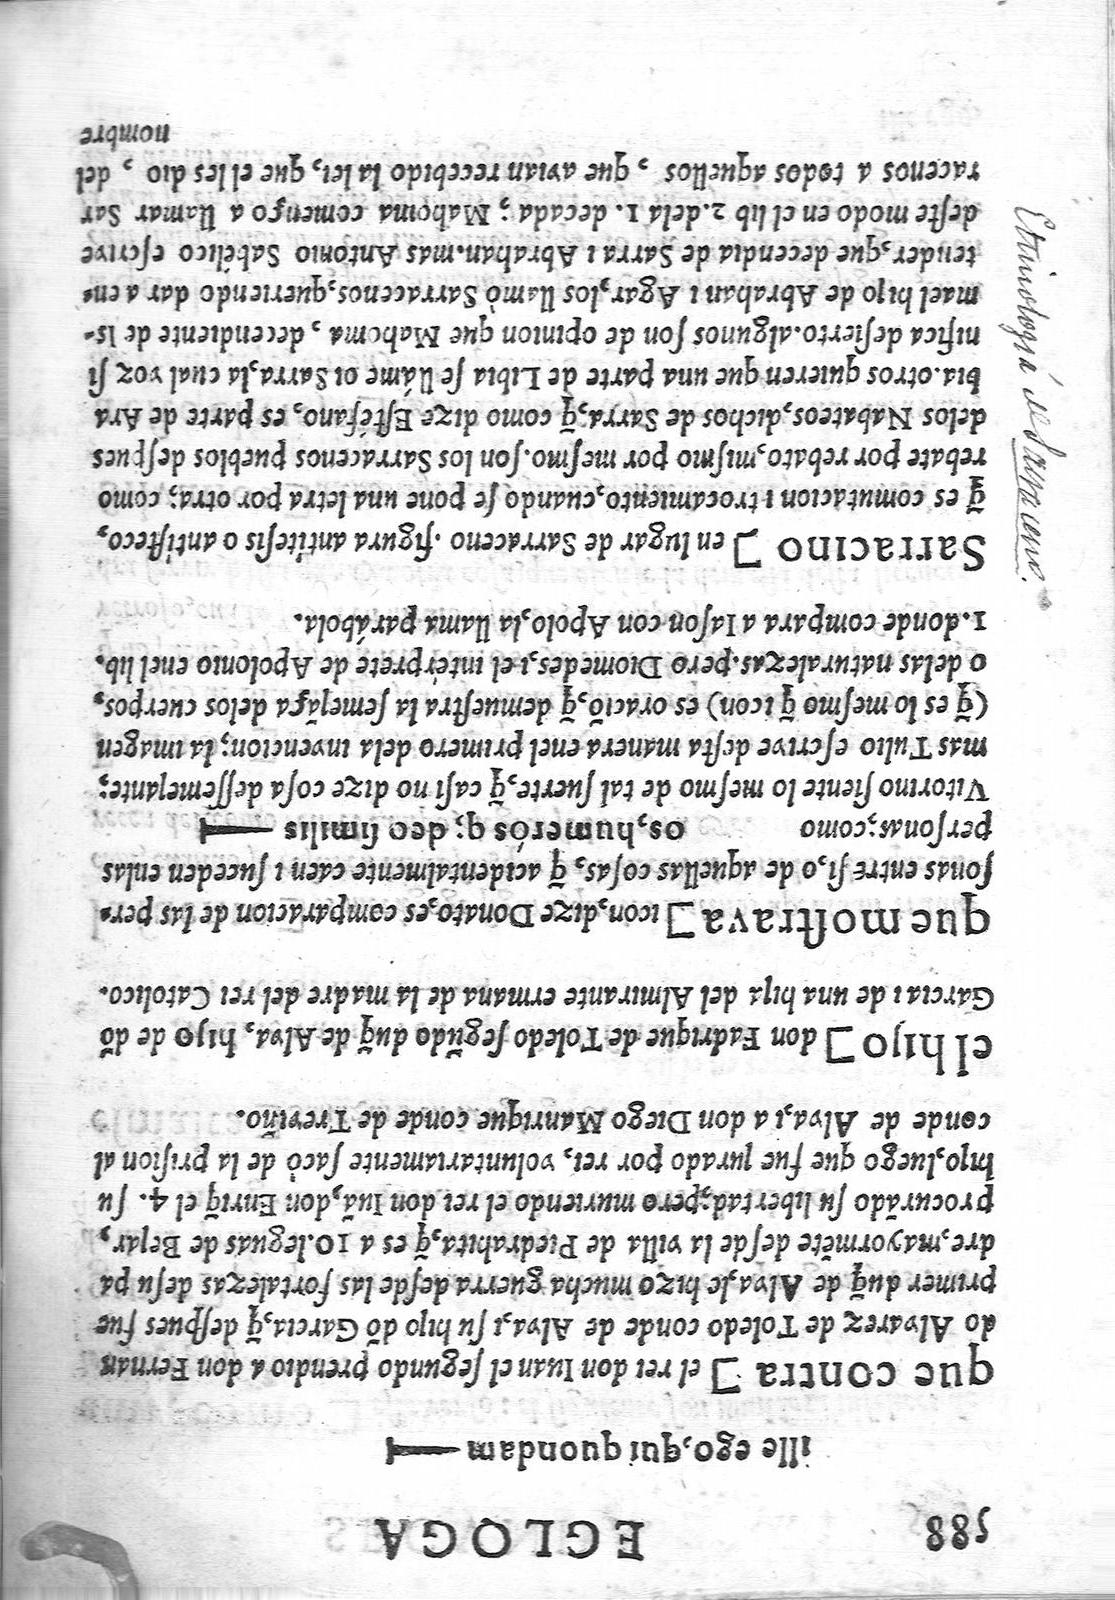 588 EGLOGA
ille ego, qui quondam
que contra] el rei don Iuan el ſegundo prendio a don Fernan
do Alvarez de Toledo conde de Alva, i ſu hijo dō Garcia, q̄ deſpues fue
primer duq̄ de Alva, le hizo mucha guerra deſde las fortalezas deſu pa
dre, mayormēte deſde la villa de Piedrahita, q̄ es a 10. leguas de Bejar,
procurādo ſu libertad; pero muriendo el rei don Iuā, don Enriq̄ el 4. ſu
hijo, luego que fue jurado por rei, voluntariamente ſacò de la priſion al
conde de Alva, i a don Diego Manrique conde de Treviño.
el hijo] don Fadrique de Toledo ſegūdo duq̄ de Alva, hijo de dō
Garcia i de una hija del Almirante ermana de la madre del rei Catolico.
que moſtrava] icon, dize Donato, es comparacion de las per-
ſonas entre ſi, o de aquellas coſas, q̄ acidentalmente caen i ſuceden enlas
perſonas; como os, humerós q; deo ſimilis
Vitorino ſiente lo meſmo de tal ſuerte, q̄ caſi no dize coſa deſſemejante;
mas Tulio eſcrive deſta manera enel primero dela invencion; la imagen
(q̄ es lo meſmo q̄ icon) es oraciō, q̄ demueſtra la ſemejāça delos cuerpos,
o delas naturalezas. pero Diomedes, i el intérprete de Apolonio enel lib.
1. donde compara a Iaſon con Apolo, la llama parábola.
Sarracino] en lugar de Sarraceno. figura antiteſis o antiſteco,
q̄ es comutacion i trocamiento, cuando ſe pone una letra por otra; como
rebate por rebato, miſmo por meſmo. ſon los Sarracenos pueblos deſpues
delos Nabateos, dichos de Sarra, q̄ como dize Eſtéfano, es parte de Ara
bia. otros quieren que una parte de Libia ſe llame oi Sarra, la cual voz ſi
nifica deſierto. algunos ſon de opinion que Mahoma, decendiente de Is-
mael hijo de Abrahan i Agar, los llamò Sarracenos, queriendo dar a en-
tender, que decendia de Sarra i Abrahan. mas Antonio Sabélico eſcrive
deſte modo en el lib 2. dela 1. decada; Mahoma començo a llamar Sar
racenos a todos aquellos, que avian recebido la lei, que el les dio, del
nombre
Etimologia d'el Sarraceno.